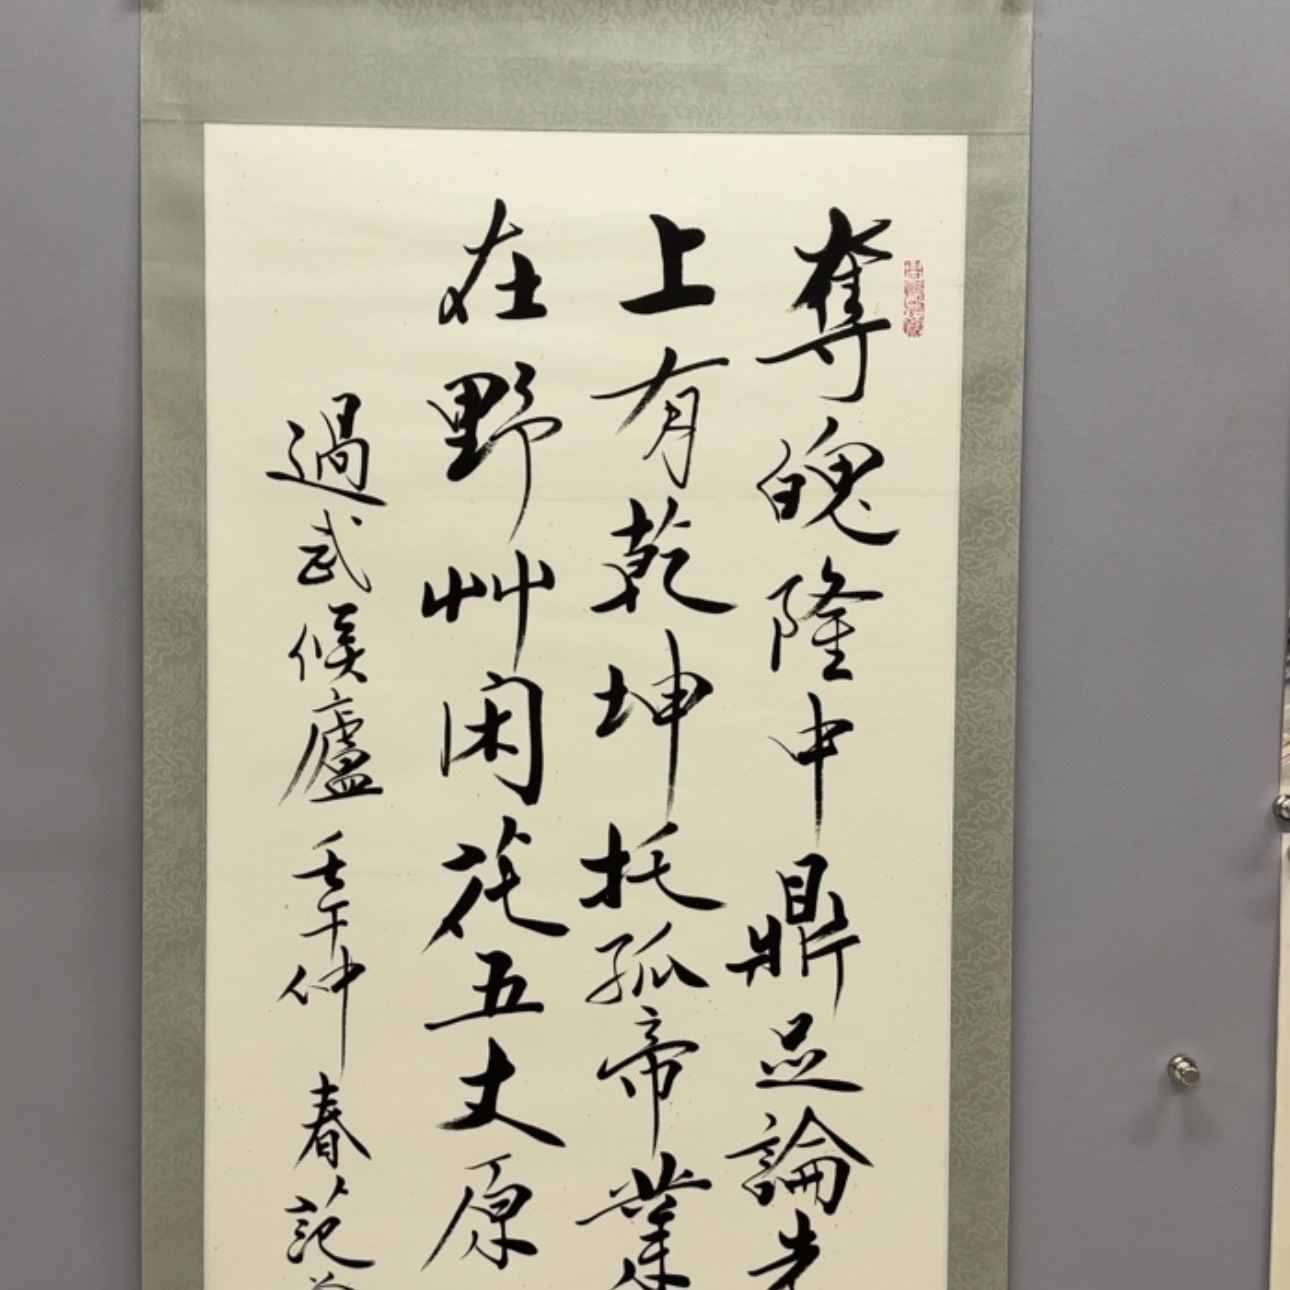 奪魄隆中鼎足論先
上有乾坤托孤帝業
在野艸闲花五丈原
過武侯廬壬午仲春范